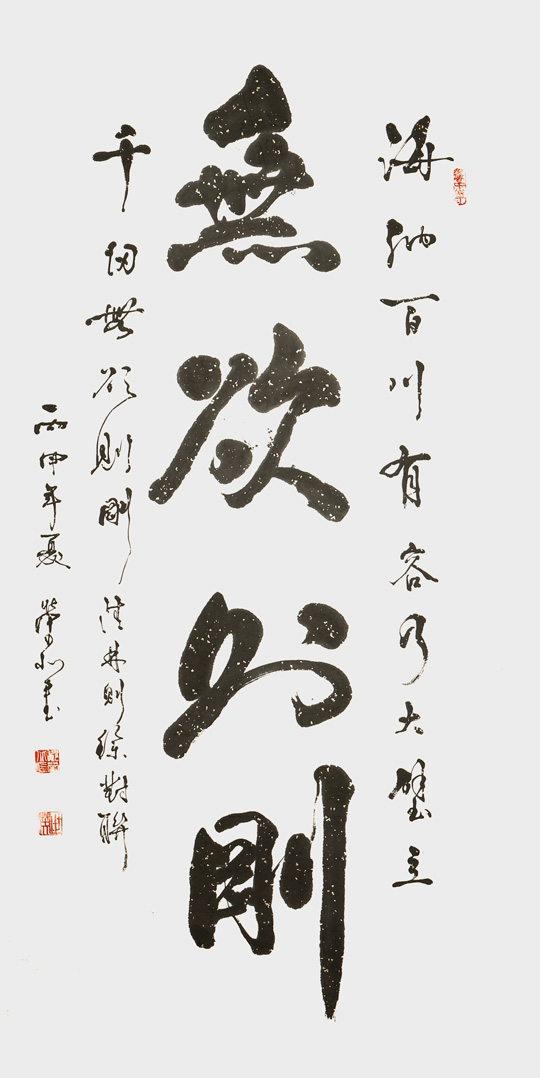 海納百川有容乃大壁立
無欲則剛
千仞無欲則剛 清林則徐對聯
丙申年夏